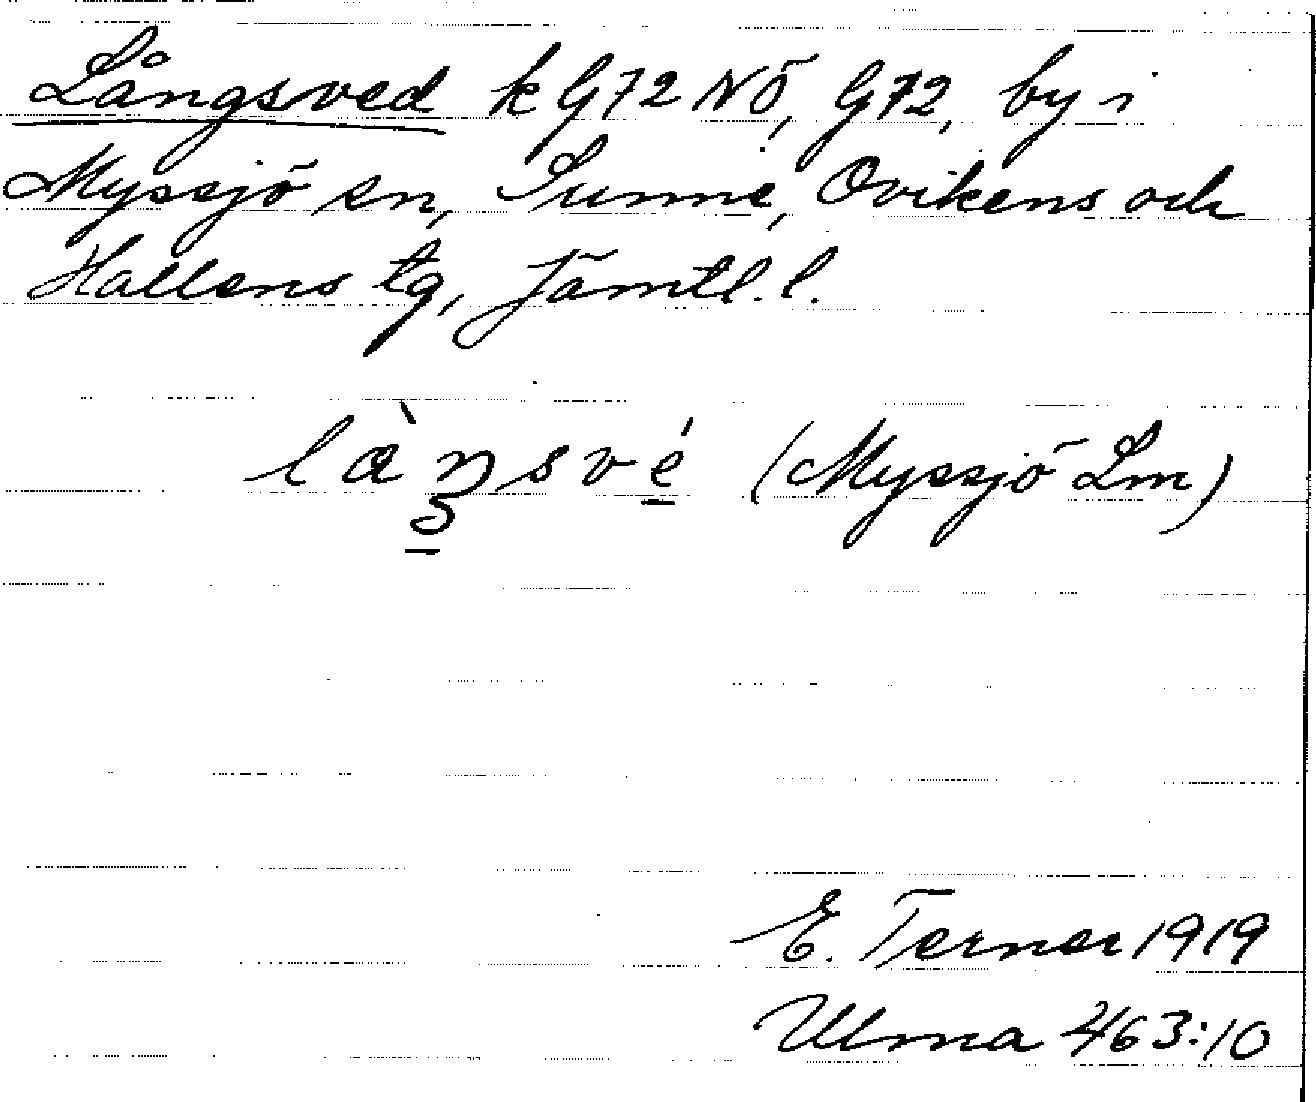 Långsved k G72 NÖ, G72, by i
Myssjö sn, Sunne, Ovikens och
Hallens tg, Jämtl. l.
(Myssjö Lm)
E. Terner 1919
Ulma 463:10